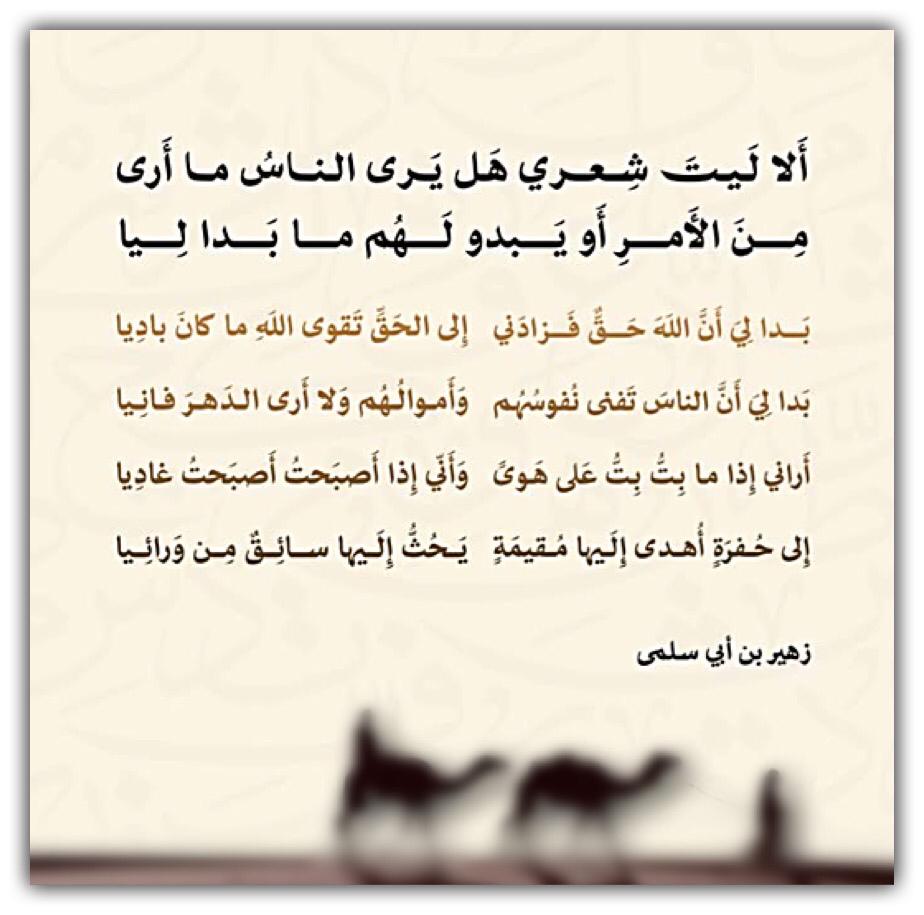 أَلا لَيتَ شِعري هَل يَرى الناسُ ما أَرى
مِنَ الأَمرِ أَو يَبدو لَهُم ما بَدا لِيا
بَدا لِيَ أَنَّ اللَهَ حَقٌّ فَزادَني إِلى الحَقِّ تَقوى اللَهِ ما كانَ بادِيا
بَدا لِيَ أَنَّ الناسَ تَفنى نُفوسُهُم وَأَموالُهُم وَلا أَرى الدَهرَ فانِيا
أَراني إِذا ما بِتُّ بِتُّ عَلى هَوىً وَأَنّي إِذا أَصبَحتُ أَصبَحتُ غادِيا
إِلى حُفرَةٍ أُهدى إِلَيها مُقيمَةٍ يَحُثُّ إِلَيها سائِقٌ مِن وَرائِيا
زهير بن أبي سلمى